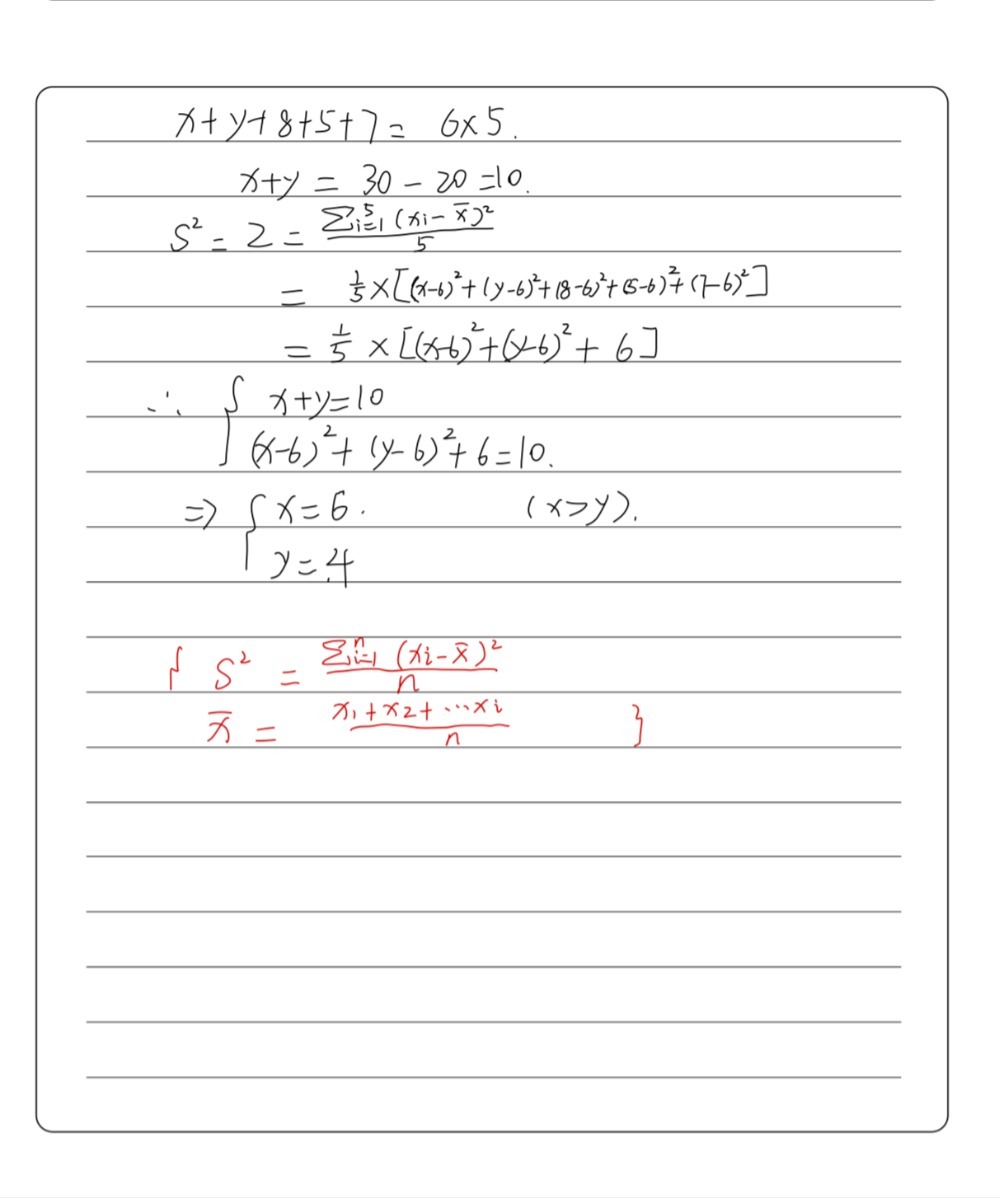 x+y+8+5+7= 6×5.
x+y = 30 - 20 =10.
S² = 2 = \frac{∑_{i=1}^{5} (xi - x̄)²}{5}
= \frac{1}{5}×[(x-6)²+(y-6)²+(8-6)²+(5-6)²+(7-6)²]
= \frac{1}{5} × [(x-6)²+(y-6)² + 6]
∴ { x+y=10
(x-6)²+ (y-6)²+6=10.
=> { x=6. (x>y).
y=4
{ S² = \frac{∑_{i=1}^{n} (xi-x̄)²}{n}
x̄ = \frac{x₁+x₂+ ···xi}{n} }